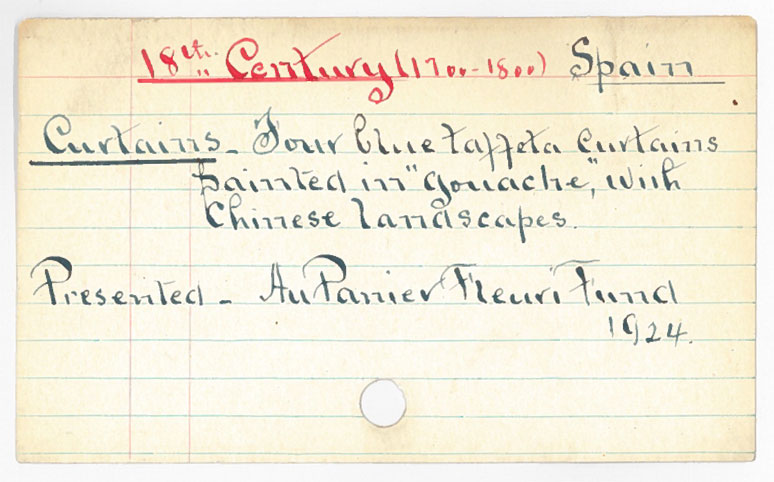 18th. Century (1700-1800) Spain
Curtains - Four blue taffeta curtains
painted in "gouache", with
Chinese landscapes.
Presented - Au Panier Fleuri Fund
1924.